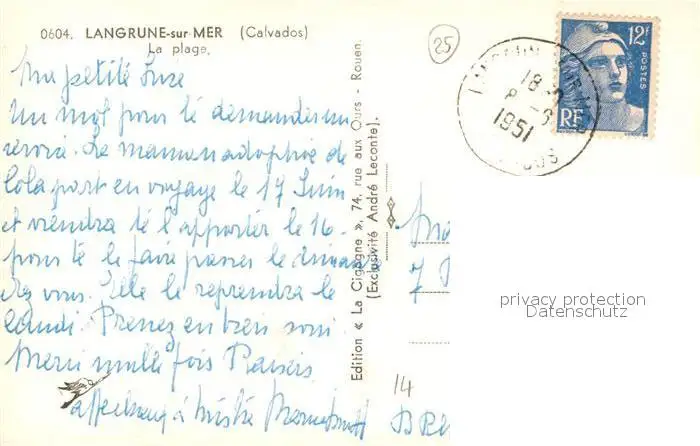 0604. LANGRUNE-sur-MER (Calvados)
La plage.
Ma petite
Un mot pour te demander un
service. La maman adoptive de
Lola part en voyage le 17 Juin
et viendra te l'apporter le 16
pour te le faire passer le dimanche
chez vous. Elle le reprendra le
Lundi. Prenez en bien soin
Merci mille fois Baisers
affectueux à
Edition « La Cigogne », 74, rue aux Ours - Rouen.
(Exclusivité André Leconte).
25
18
8-6
1951
12F
POSTES
RF
7
privacy protection
Datenschutz
14